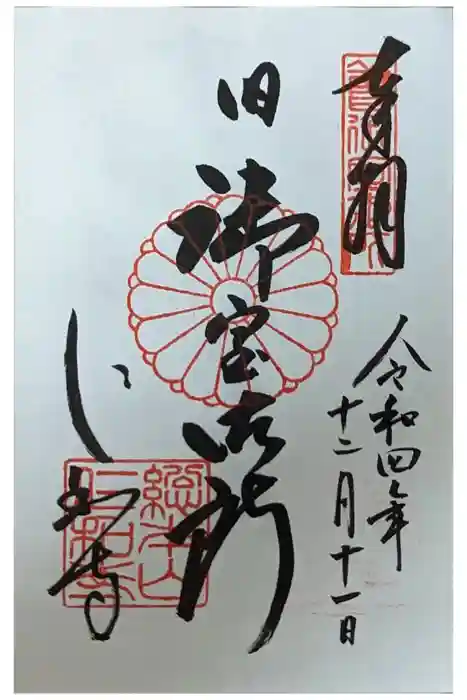 奉拝
令和四年
十二月十一日
旧
御室御所
仁和寺
総本山
仁和寺